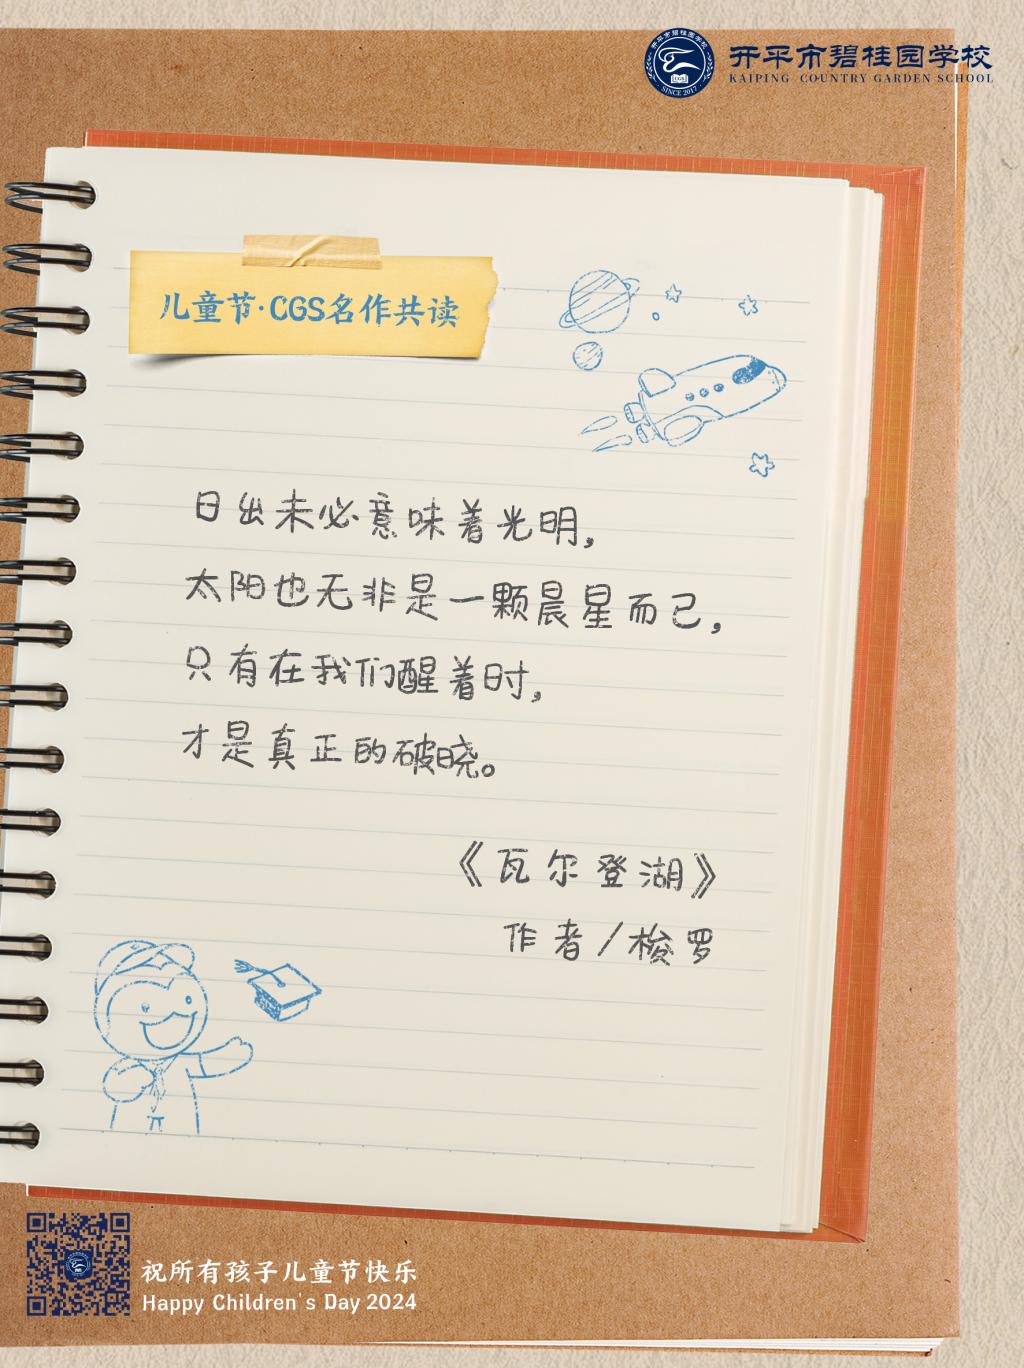 开平市碧桂园学校
KAIPING COUNTRY GARDEN SCHOOL
SINCE 2017
儿童节·CGS名作共读
日出未必意味着光明,
太阳也无非是一颗晨星而已,
只有在我们醒着时,
才是真正的破晓。
《瓦尔登湖》
作者/梭罗
祝所有孩子儿童节快乐
Happy Children's Day 2024